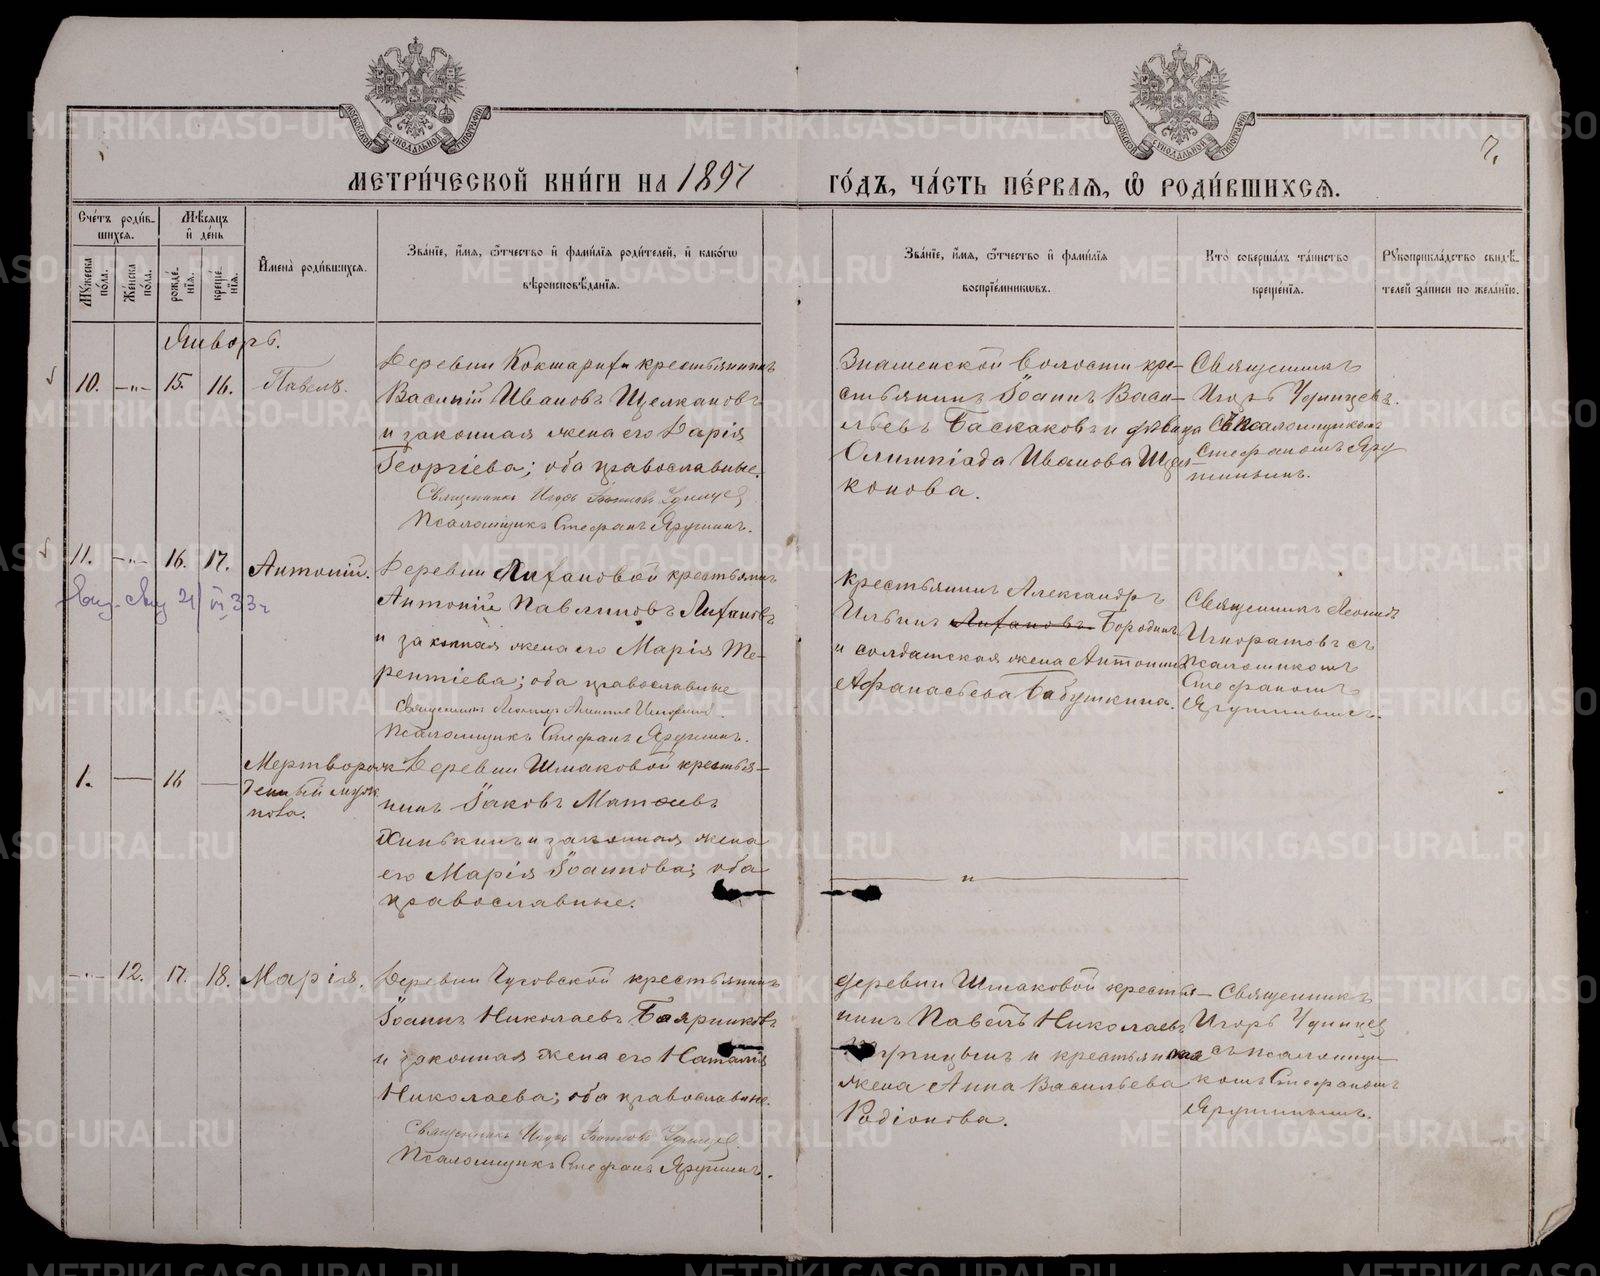 МОСКОВСКОЙ СУНОДАЛЬНОЙ ТИПОГРАФІИ
МОСКОВСКОЙ СУНОДАЛЬНОЙ ТИПОГРАФІИ
7.
МЕТРИЧЕСКОЙ КНИГИ НА 1897
ГОДЪ, ЧАСТЬ ПЕРВАЯ, Ѽ РОДИВШИХСѦ.
Счетъ родив-
шихся.
Мѣсяцъ
и день
Мужеска
пола.
Женска
пола.
рожде-
нія.
креще-
нія.
Имена родившихся.
Званіе, имя, ѿчество и фамилія родителей, и какогѡ
вѣроисповѣданія.
Званіе, имя, ѿчество и фамилія
воспріемниковъ.
Кто совершалъ таинство
крещенія.
Рукоприкладство свидѣ-
телей записи по желанію.
Январь.
10. -"- 15. 16. Павелъ.
Деревни Кокшариха крестьянинъ
Василій Ивановъ Щелкановъ
и законная жена его Дарія
Георгіева; оба православные.
Священникъ Игорь
Псаломщикъ Стефанъ Ярушинъ.
Знаменской волости кре-
стьянинъ Іоаннъ Васи-
льевъ Баскаковъ и дѣвица
Олимпіада Иванова Щел-
конова.
Священникъ
Игорь
съ псаломщикомъ
Стефаномъ Яру
шинымъ.
11. -"- 16. 17. Антоній.
Деревни Лихановой крестьянинъ
Антоній Павлиновъ Лихановъ
и законная жена его Марія Те-
рентіева; оба православные
Священникъ Леонидъ
Псаломщикъ Стефанъ Ярушинъ.
Крестьянинъ Александръ
Ильинъ Лихановъ. Бородинъ
и солдатская жена Антонина
Афанасьева Бабушкина.
Священникъ Леонидъ
Игноратовъ съ
псаломщикомъ
Стефаномъ
Ярушинымъ.
1. — 16 —
Мертворож
денный муж
пола.
Деревни Шмаковой крестья-
нинъ Іаковъ Матѳеевъ
Хинькинъ и законная жена
его Марія Іоаннова; оба
православные.
— " —
-"- 12. 17. 18. Марія.
Деревни Чусовской крестьянинъ
Іоаннъ Николаевъ Бояршиковъ
и законная жена его Наталія
Николаева; оба православные.
Священникъ Игорь
Псаломщикъ Стефанъ Ярушинъ.
Деревни Шмаковой крестья-
нинъ Павелъ Николаевъ
и крестьянская
жена Анна Васильева
Родіонова.
Священникъ
Игорь
съ псаломщи-
комъ Стефаномъ
Ярушинымъ.
METRIKI.GASO-URAL.RU